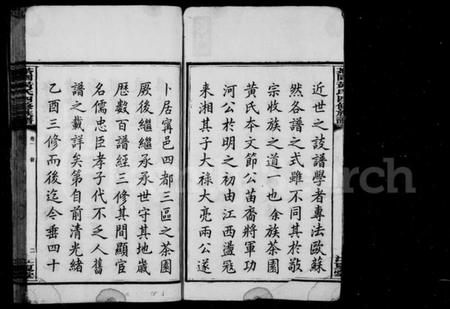 近世之談譜學者專法歐蘇
然各譜之式雖不同其於敬
宗收族之道一也余族茶園
黃氏本文節公苗裔將軍功
河公於明之初由江西盪冦
来湘其子大祿大亮兩公遂
卜居寧邑四都三區之茶園
厥後繼繼承承世守其地歲
歷數百譜經三修其間顯官
名儒忠臣孝子代不乏人舊
譜之載詳矣第自前清光緒
乙酉三修而後迄今垂四十
卷一
二